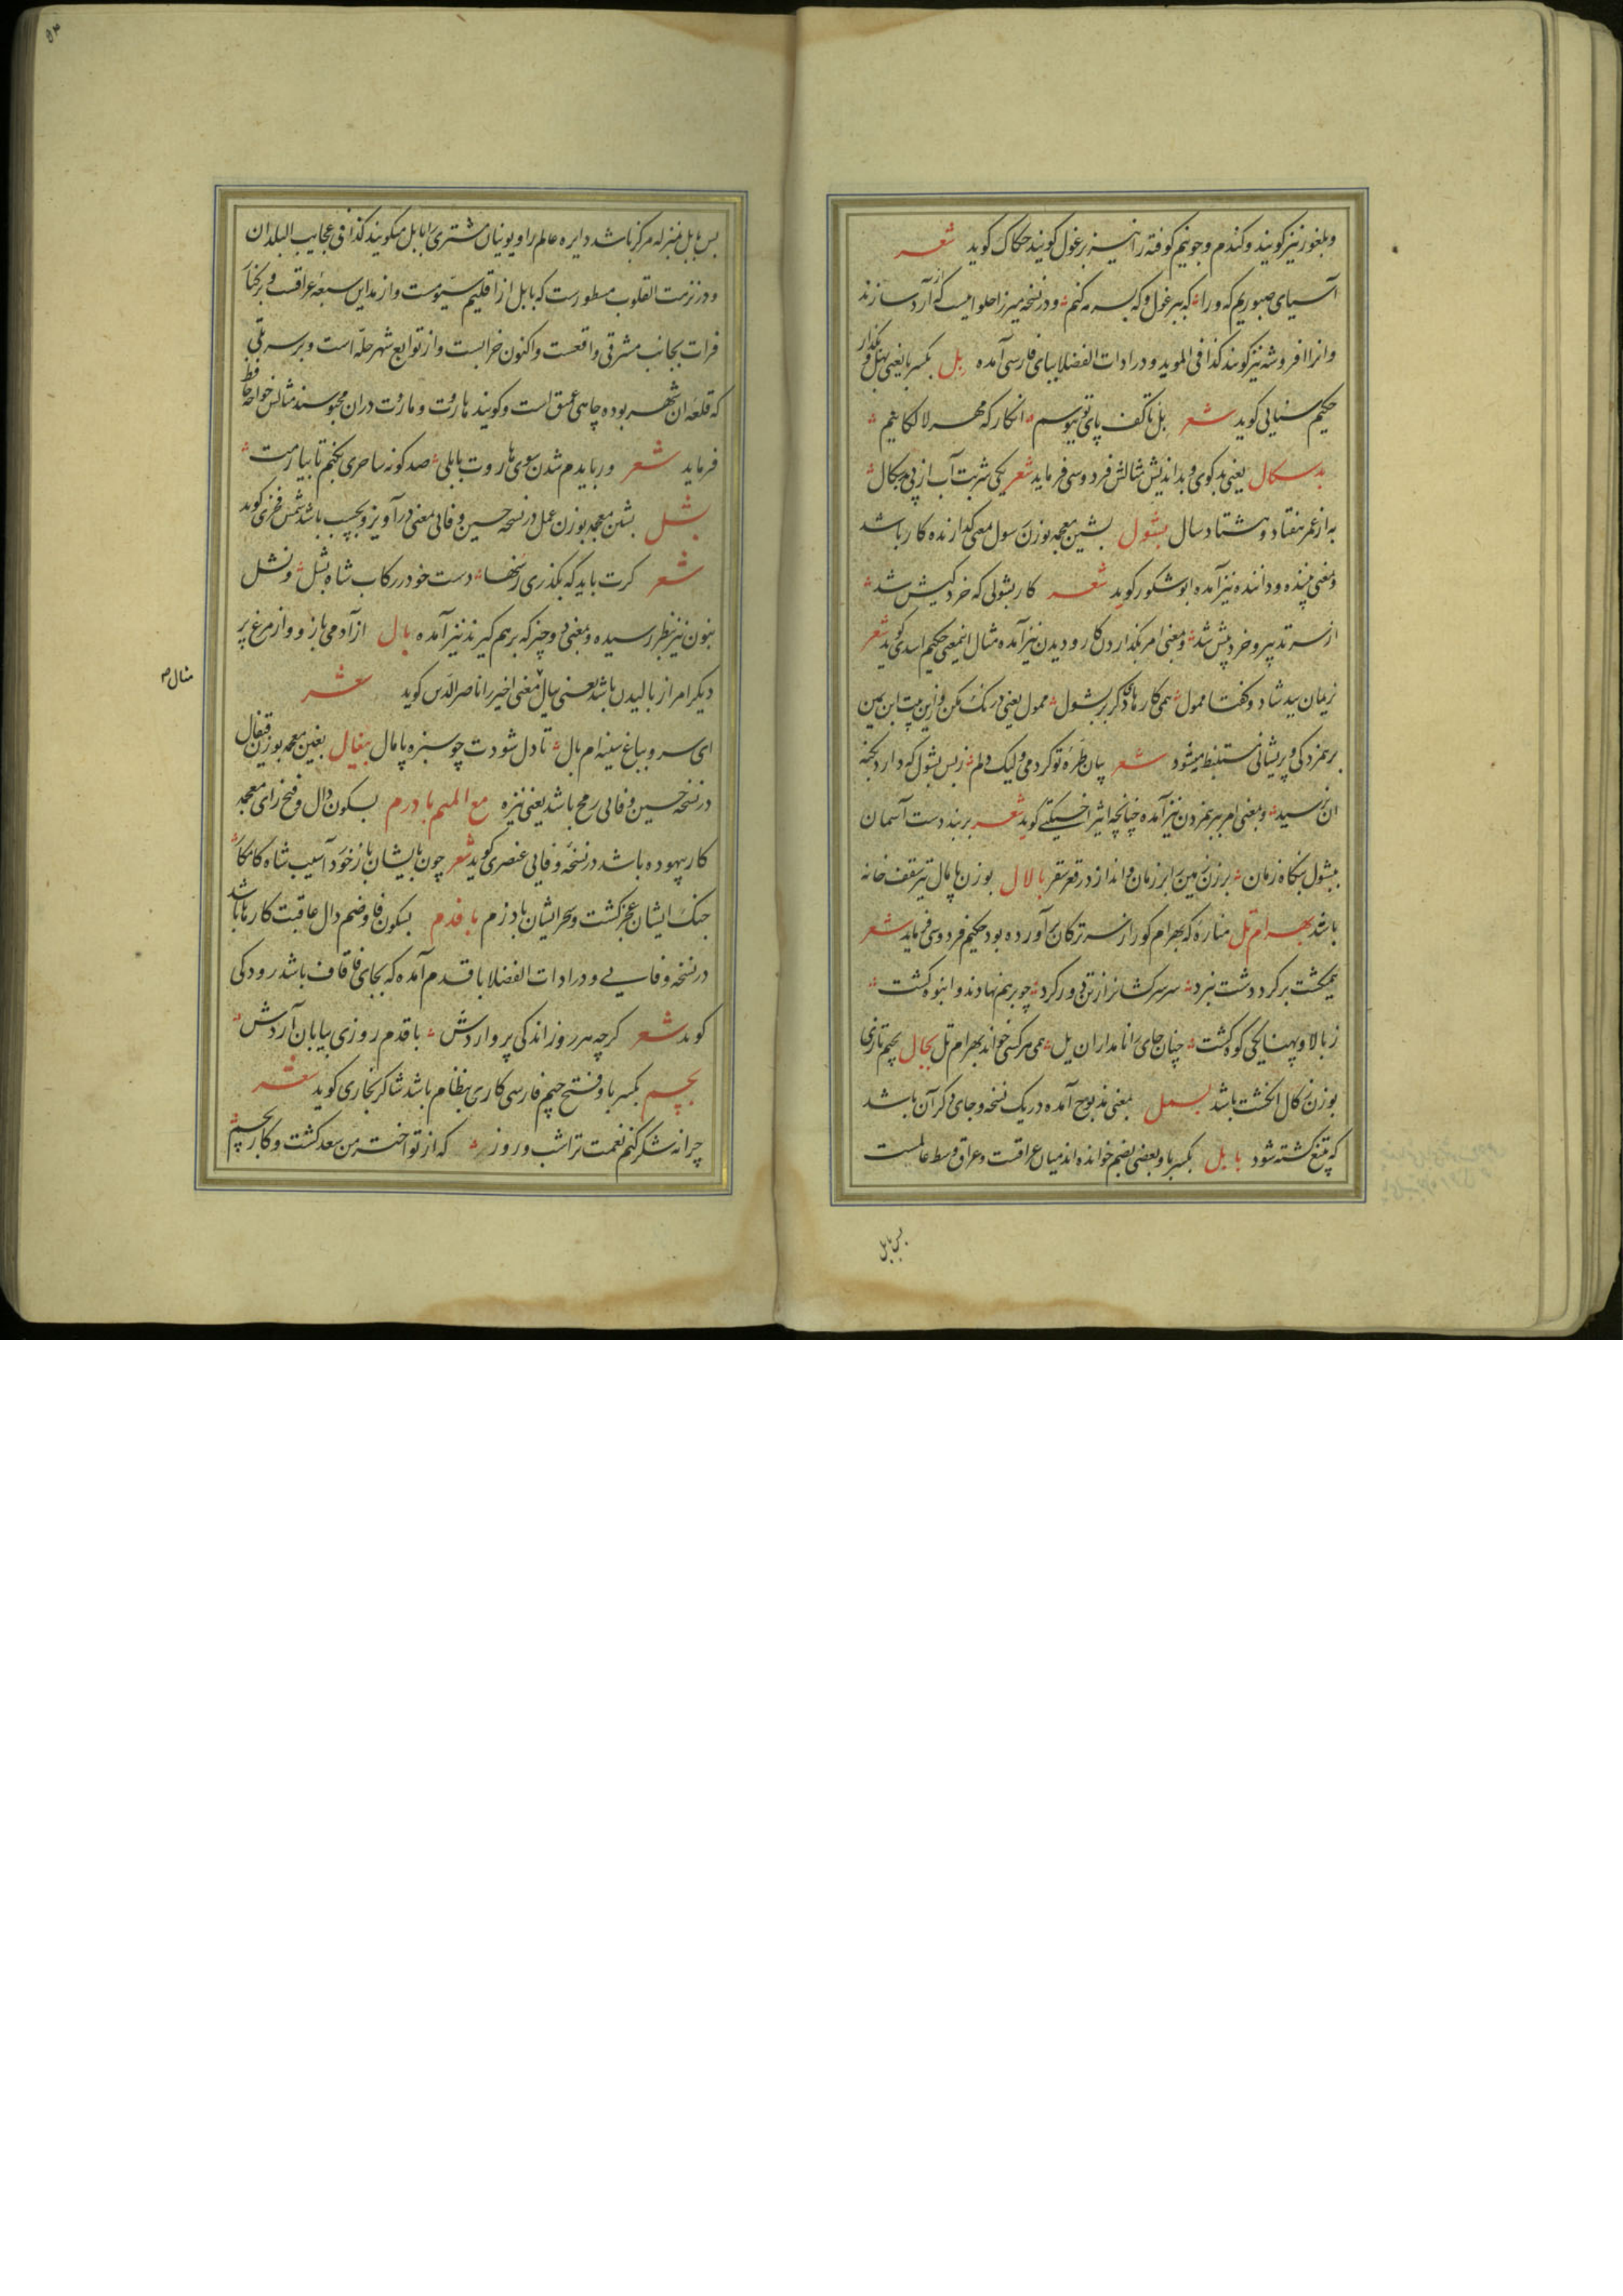 وبلغور نیز کویند و کندم و جو نیم کوفته را نیز برغول کویند حکاک کوید شعر
آسیای صبوریم که ورا که ببرغول و که بسرمه کنم و در نسخه میرزا حلوائیست که از آرد سازند
وانرا افروشه نیز کویند کذا فی الموید و در ادات الفضلا ببای فارسی آمده بل بکسر با یعنی بهل و بکذار
حکیم سنایی کوید شعر بل تا کف پای تو ببوسم انکار که مهر لالکایم
بدسکال یعنی بدکوی و بداندیش مثالش فردوسی فرماید شعر یکی شربت آب از پی بدسکال
به از عمر هفتاد و هشتاد سال بشول بشین معجمه بوزن رسول معنی کدازنده کار باشد
ومعنی بیننده و داننده نیز آمده ابوشکور کوید شعر کار بشولی که خرد کیش شد
از سر تدبیر و خرد پیش شد و معنی امر بکذاردن کار و دیدن نیز آمده مثال اینمعنی حکیم اسدی کوید شعر
زمان سید شاد و کفتا ممول همی کارهای دکر بر بشول ممول یعنی درنک مکن و ازین بیت ابن یمین
برهمزدکی و پریشانی مستنبط میشود شعر بیان طره تو کردمی ولیک دلم ز بس بشول که دارد بکنه
ان نرسید و بمعنی امر ببرهمزدن نیز آمده چنانچه اثیر اخسیکتی کوید شعر بربند دست آسمان
بشول بنکاه زمان برزن زمین را بر زمان و انداز در قعر سقر بالال بوزن پامال تیر سقف خانه
باشد بهرام تل مناره که بهرام کور از سر ترکان برآورده بود حکیم فردوسی فرماید شعر
همیکشت بر کرد دشت نبرد سر سرکشانرا ز تن دور کرد چو برهم نهادند و انبوه کشت
ز بالا و پهنا یکی کوه کشت چنان جای را نامداران یل همی هرکسی خواند بهرام تل بجال بجیم تازی
بوزن زکال انکشت باشد بسمل بمعنی مذبوح آمده در یک نسخه و جای دکر آن باشد
که بتیغ کشته شود بابل بکسر با و بعضی بضم خوانده اند میان عراقست و عراق وسط عالمست
پس بابل
۵۳
پس بابل بمنزله مرکز باشد دایره عالم را و یونیان مشتری را بابل میکویند کذا فی عجایب البلدان
ودر نزهت القلوب مسطورست که بابل از اقلیم سیومست و از مداین سبعه عراقست و بر کنار
فرات بجانب مشرقی واقعست و اکنون خرابست و از توابع شهر حله است و بر سر تلی
که قلعه ان شهر بوده چاهی عمیق است و کویند هاروت و ماروت دران محبوسند مثالش خواجه حافظ
فرماید شعر ور بایدم شدن سوی هاروت بابلی صد کونه ساحری بکنم تا بیارمت
بشل بشین معجمه بوزن عمل در نسخه حسین وفائی معنی درآویز و بچسب باشد شمس فخری کوید
شعر کرت باید که بکذری ز سها دست خود در رکاب شاه بشل و نشل
بنون نیز بنظر رسیده و بمعنی دو چیز که برهم کیرند نیز آمده بال از آدمی بازو و از مرغ پر
دیکر امر از بالیدن باشد یعنی ببال معنی اخیر را ناصرالدین کوید شعر
مثال ص
ای سرو بباغ سینه ام بال تا دل شودت چو سبزه پامال بیغال بغین معجمه بوزن قیفال
در نسخه حسین وفائی رمح باشد یعنی نیزه مع المیم بادرم بسکون دال و فتح رای معجمه
کار بیهوده باشد در نسخه وفایی عنصری کوید شعر چون بایشان باز خورد آسیب شاه کامکار
جنک ایشان عجز کشت و سحر ایشان بادرم بافدم بسکون فا و ضم دال عاقبت کارها باشد
در نسخه وفایی و در ادات الفضلا باقدم آمده که بجای فا قاف باشد رودکی
کوید شعر کرچه هر روز اندکی برواردش باقدم روزی بپایان آردش
بچم بکسر با و فتح جیم فارسی کاری بنظام باشد شاکر بخاری کوید شعر
چرا نه شکر کنم نعمت ترا شب و روز که از تو اختر من سعد کشت و کار بچم